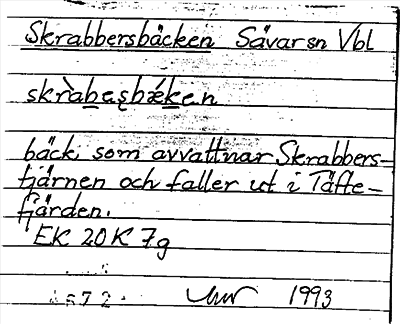 Skrabbersbäcken Sävar sn Vbl
skràbasbǽken
bäck som avvattnar Skrabbers-
tjärnen och faller ut i Täfte-
fjärden.
EK 20K 7g
1993